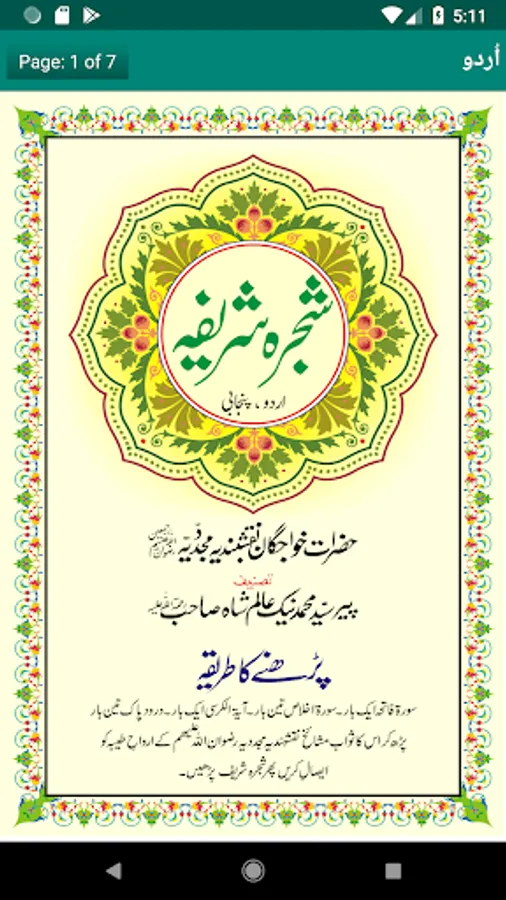 5:11
Page: 1 of 7
أردو
شجرہ شریفہ
اردو، پنجابی
حضرات خواجگان نقشبندیہ مجددیہ
تصنیف
پیر سیّد محمد نیک عالم شاہ صاحب رحمۃ اللہ علیہ
پڑھنے کا طریقہ
سورۃ فاتحہ ایک بار۔ سورۃ اخلاص تین بار۔ آیۃ الکرسی ایک بار۔ درود پاک تین بار
پڑھ کر اس کا ثواب مشائخ نقشبندیہ مجددیہ رضوان اللہ علیھم کے ارواح طیبہ کو
ایصال کریں پھر شجرہ شریف پڑھیں۔